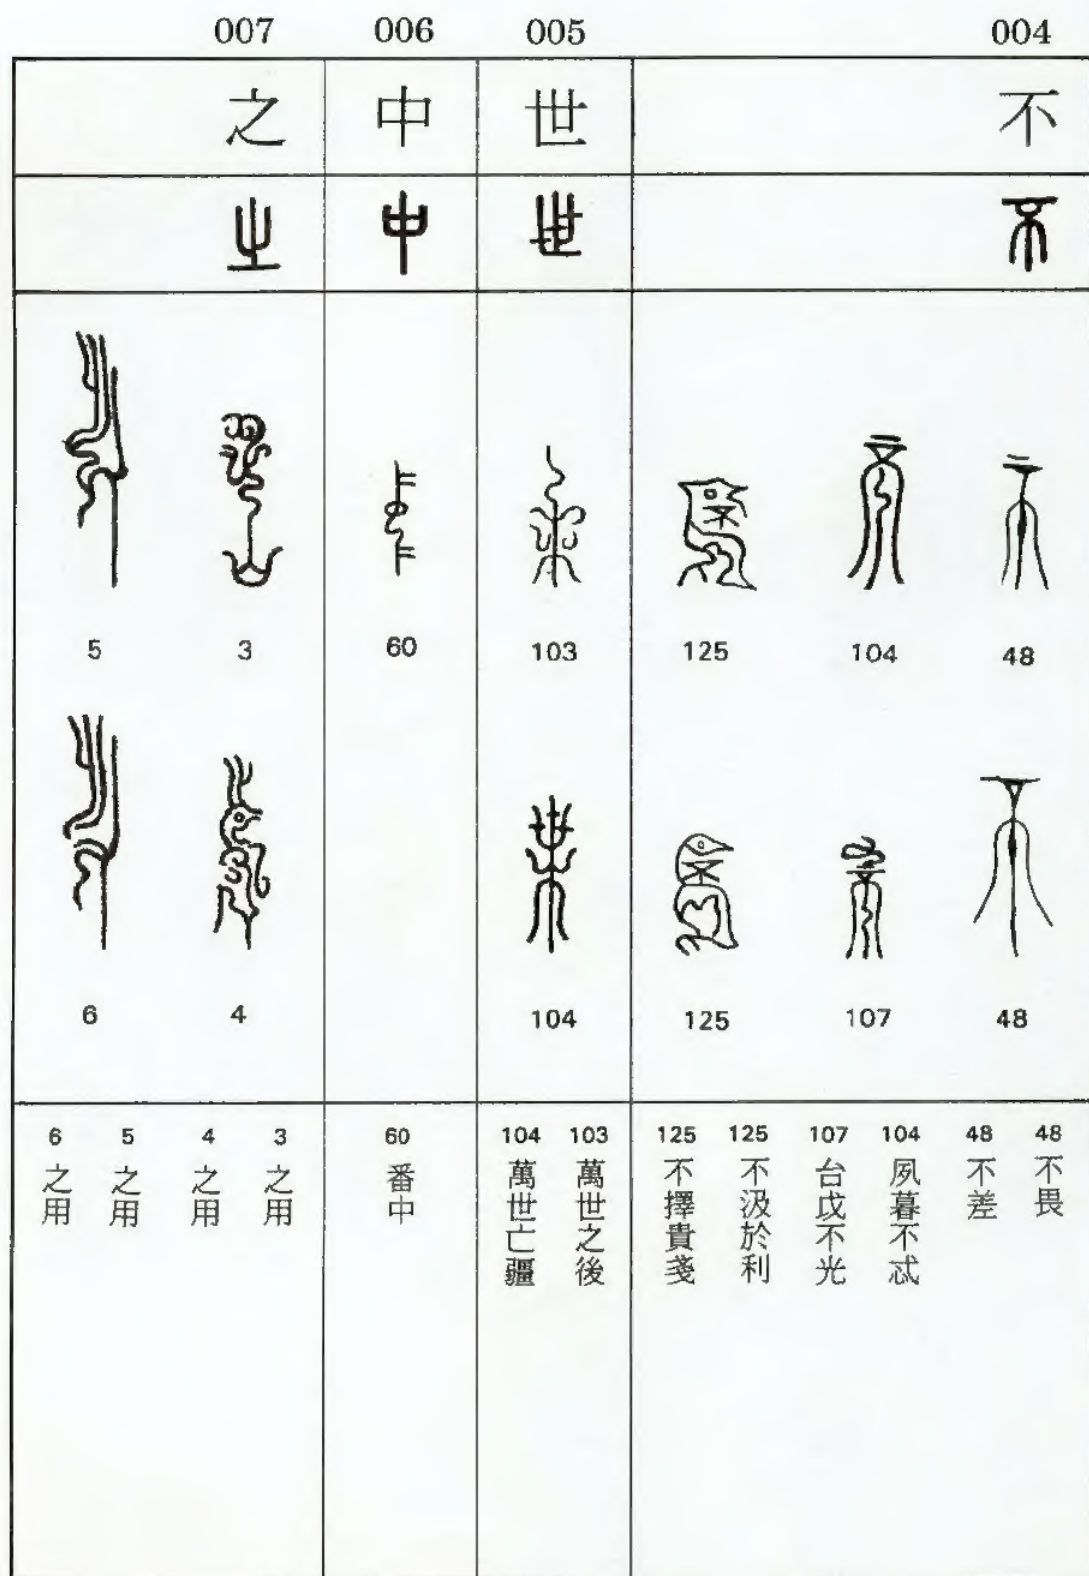 004
不
48
104
125
48
107
125
48 不畏
48 不差
104 夙暮不忒
107 台戉不光
125 不汲於利
125 不擇貴戔
005
世
103
104
103 萬世之後
104 萬世亡疆
006
中
60
60 番中
007
之
3
5
4
6
3 之用
4 之用
5 之用
6 之用